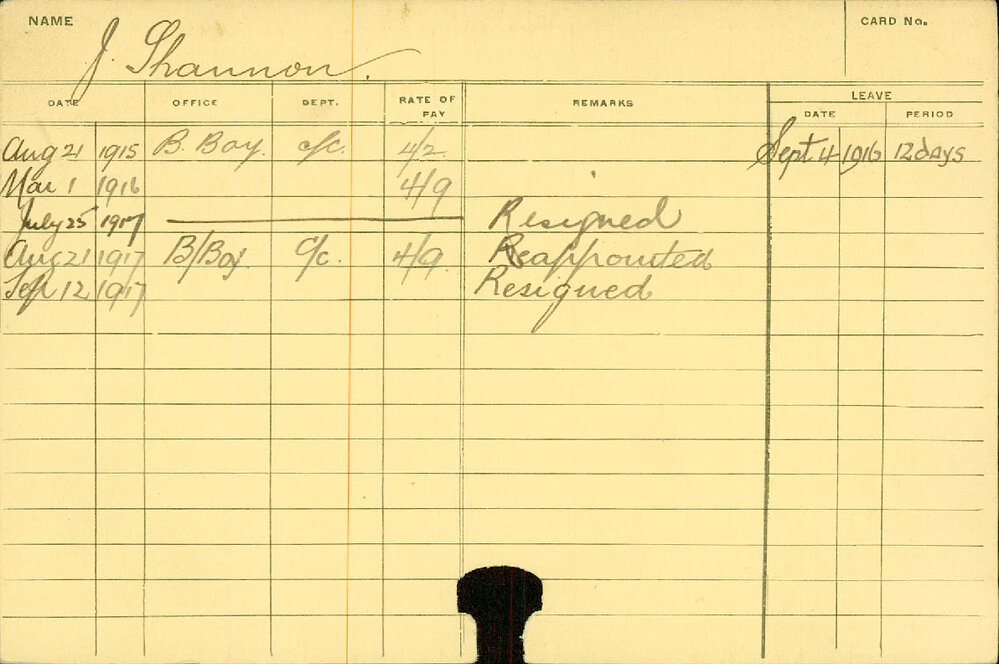 NAME J. Shannon. CARD No.
DATE OFFICE DEPT. RATE OF PAY REMARKS LEAVE
DATE PERIOD
Aug 21 1915 B. Boy. c/c. 4/2 Sept 4 1916 12 days
Mar 1 1916 4/9
July 25 1917 Resigned
Aug 21 1917 B/Boy c/c. 4/9 Reappointed
Sep 12 1917 Resigned